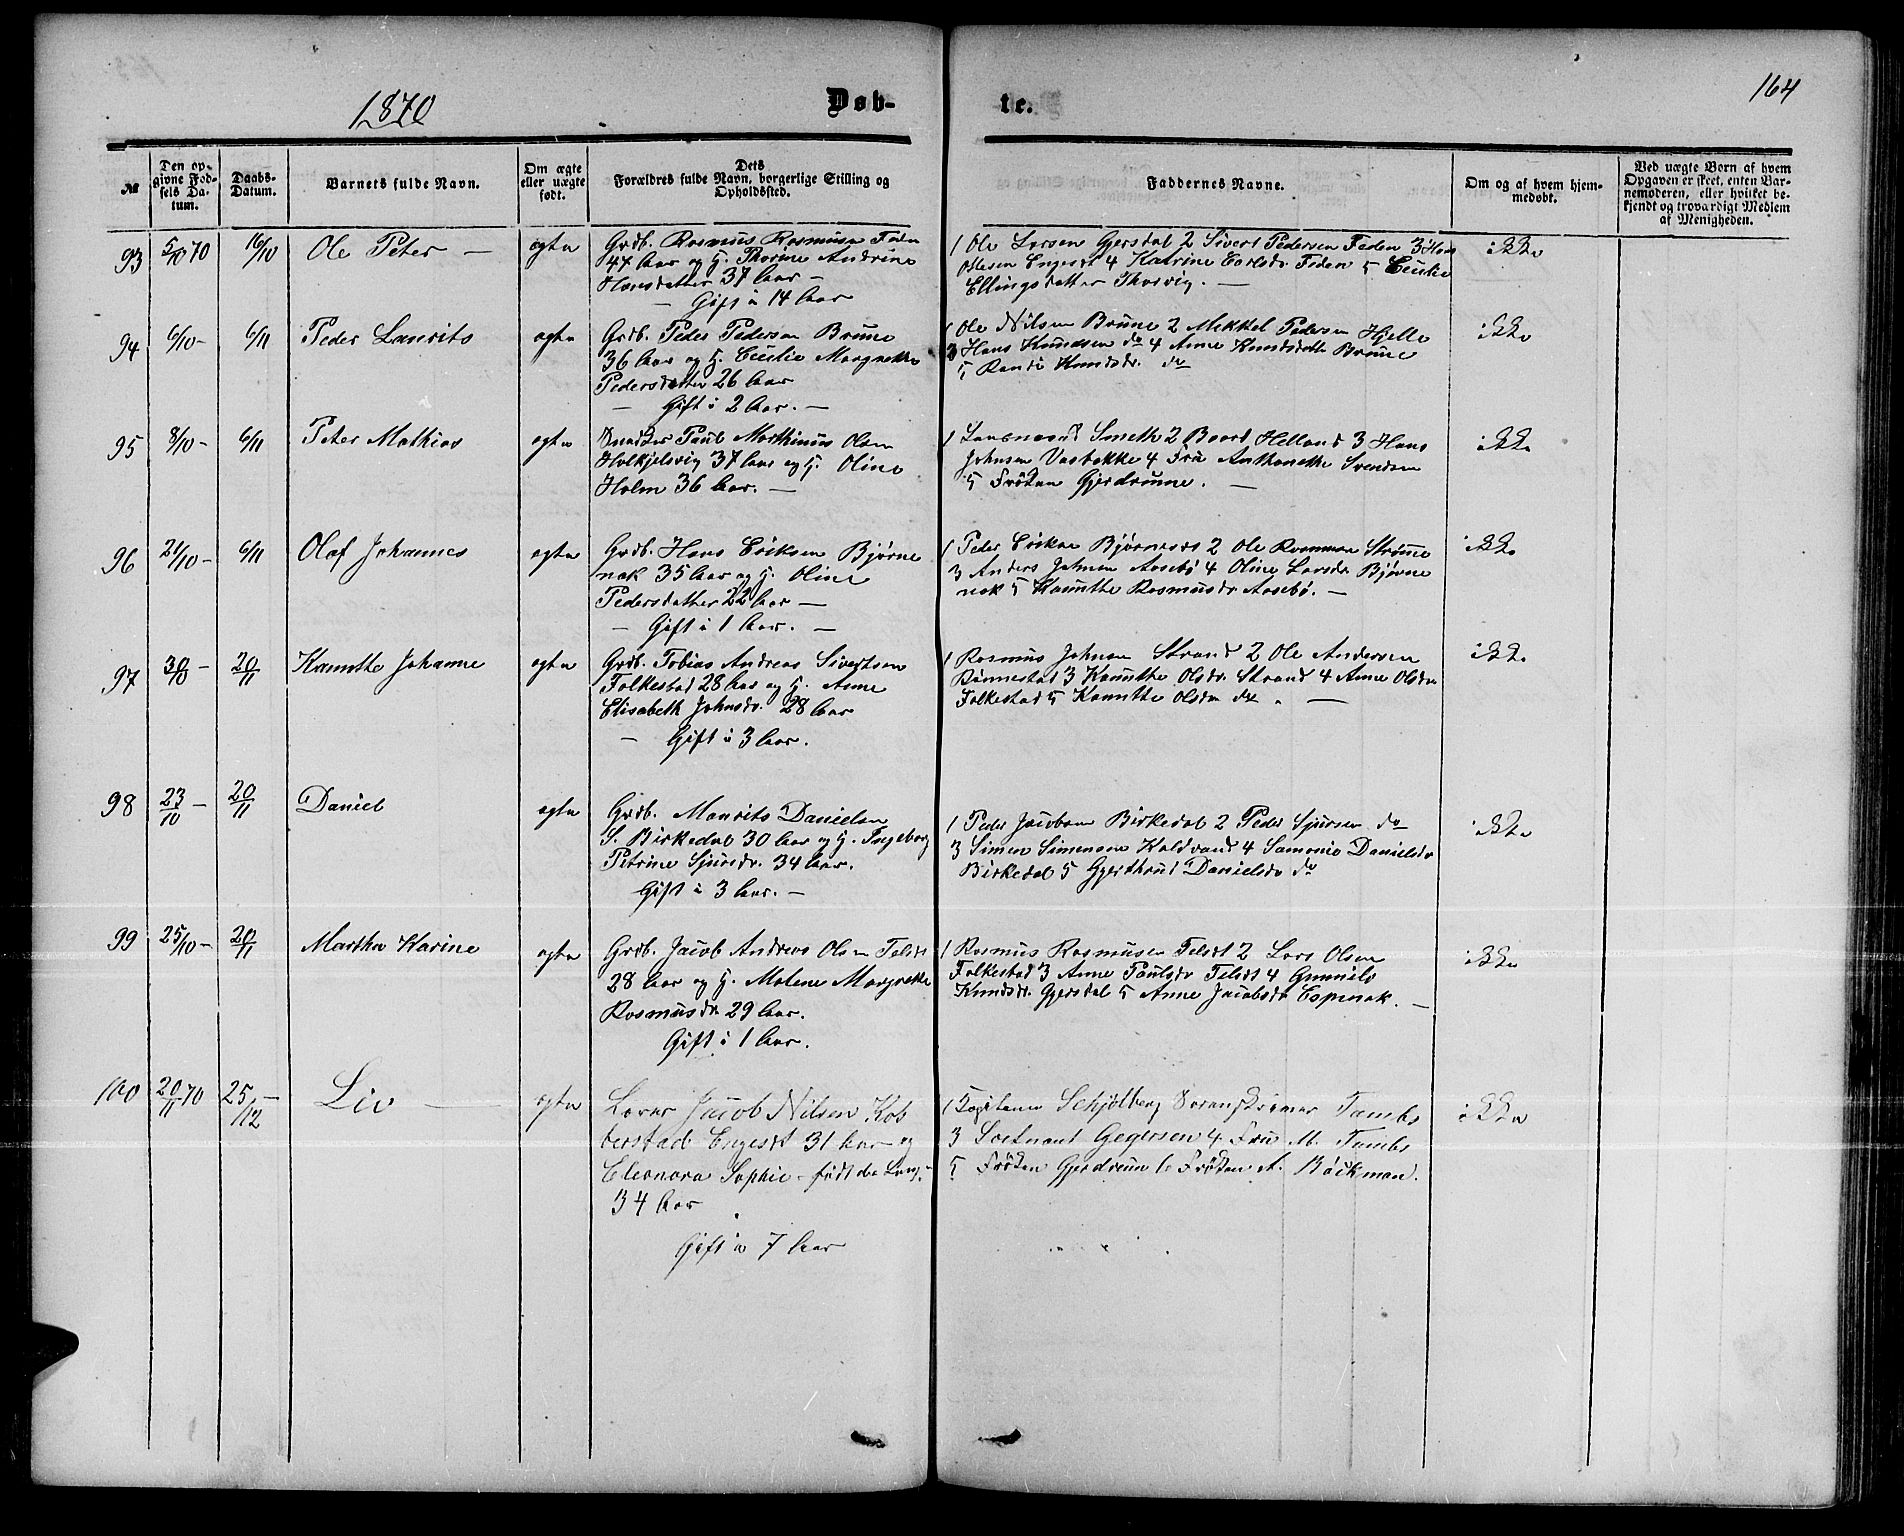 1870
Døb-
te.
164
№
Den op-
givne Fød-
sels Da-
tum.
Daabs-
Datum.
Barnets fulde Navn.
Om ægte
eller uægte
født.
Dets
Forældres fulde Navn, borgerlige Stilling og
Opholdssted.
Faddernes Navne.
Om og af hvem hjem-
medøbt.
Ved uægte Børn af hvem
Opgaven er skeet, enten Bar-
nemoderen, eller hvilket be-
kjendt og troværdigt Medlem
af Menigheden.
93 5/10 70 16/10 Ole Peter — ægte
Grdb. Rasmus Rasmusen
47 Aar og H. Thorine Andrine
Hansdatter 37 Aar —
— Gift i 14 Aar
1 Ole Larsen Gjersdal 2 Sivert Pedersen Feden 3 Hans
Olesen Engeset 4 Katrine Carlsdr. Feden 5 Cecilie
Ellingsdatter Thorvig. —
ikke
94 6/10 - 6/11 Peder Laurits ægte
Grdb. Peder Pedersen Brune
36 Aar og H. Cecilie Margrethe
Pedersdatter 26 Aar
— Gift i 2 Aar. —
1 Ole Nilsen Brune 2 Mikkel Pedersen Hjelle
3 Hans Knudsen do 4 Anne Knudsdatter Brune
5 Randi Knudsdr. do
ikke
95 8/10 - 6/11 Peter Mathias ægte
Paul Marthinus Olsen
Holkjelsvig 37 Aar og H. Oline
Holm 36 Aar. —
1 Smeth 2 Baard Helland 3 Hans
Johnsen Vasbakke 4 Fru Anthonette Svendsen
5 Frøken Gjerdrume. —
ikke
96 21/10 - 6/11 Olaf Johannes ægte
Grdb. Hans Eriksen Bjørne
nak 35 Aar og H. Oline
Pedersdatter 22 Aar —
— Gift i 1 Aar. —
1 Peder Eriksen 2 Ole Rasmusen Strøme
3 Anders Johnsen Aasebø 4 Oline Larsdr Bjørne
nak 5 Kanutte Rasmusdr Aasebø. —
ikke
97 30/10 - 20/11 Kanutte Johanne ægte
Grdb. Tobias Andreas Sivertsen
Folkestad 28 Aar og H. Anne
Elisabeth Johnsdr. 28 Aar
— Gift i 3 Aar.
1 Rasmus Johnsen Strand 2 Ole Andersen
Rinnestad 3 Kanutte Olsdr. Strand 4 Anne Olsdr
Folkestad 5 Kanutte Olsdr do . —
ikke
98 23/10 - 20/11 Daniel ægte
Grdb. Maurits Danielsen
S. Birkedal 30 Aar og H. Ingeborg
Petrine Sjursdr. 34 Aar.
Gift i 3 Aar. —
1 Peder Jacobsen Birkedal 2 Peder Sjursen do
3 Simen Simensen Koldvand 4 Samonie Danielsdr
Birkedal 5 Gjerthrud Danielsdr do
ikke
99 25/10 - 20/11 Martha Karine ægte
Grdb. Jacob Andreas Olsen
28 Aar og H. Malene Margrethe
Rasmusdr 29 Aar.
Gift i 1 Aar.
1 Rasmus Rasmusen 2 Lars Olsen
Folkestad 3 Anne Paulsdr 4 Gunnild
Knudsdr. Gjersdal 5 Anne Jacobsdr Espenak. —
ikke
100 20/11 70 25/12 Liv — ægte
Lærer Jacob Nilsen Kob
berstad Engeset 31 Aar og
Eleonora Sophie født de Lang
34 Aar
Gift i 7 Aar
1 Schjølberg 2 Tambs
3 Lieutnant Gegersen 4 Fru M. Tambs
5 Frøken Gjerdrum 6 Frøken A. Bøckman.
ikke